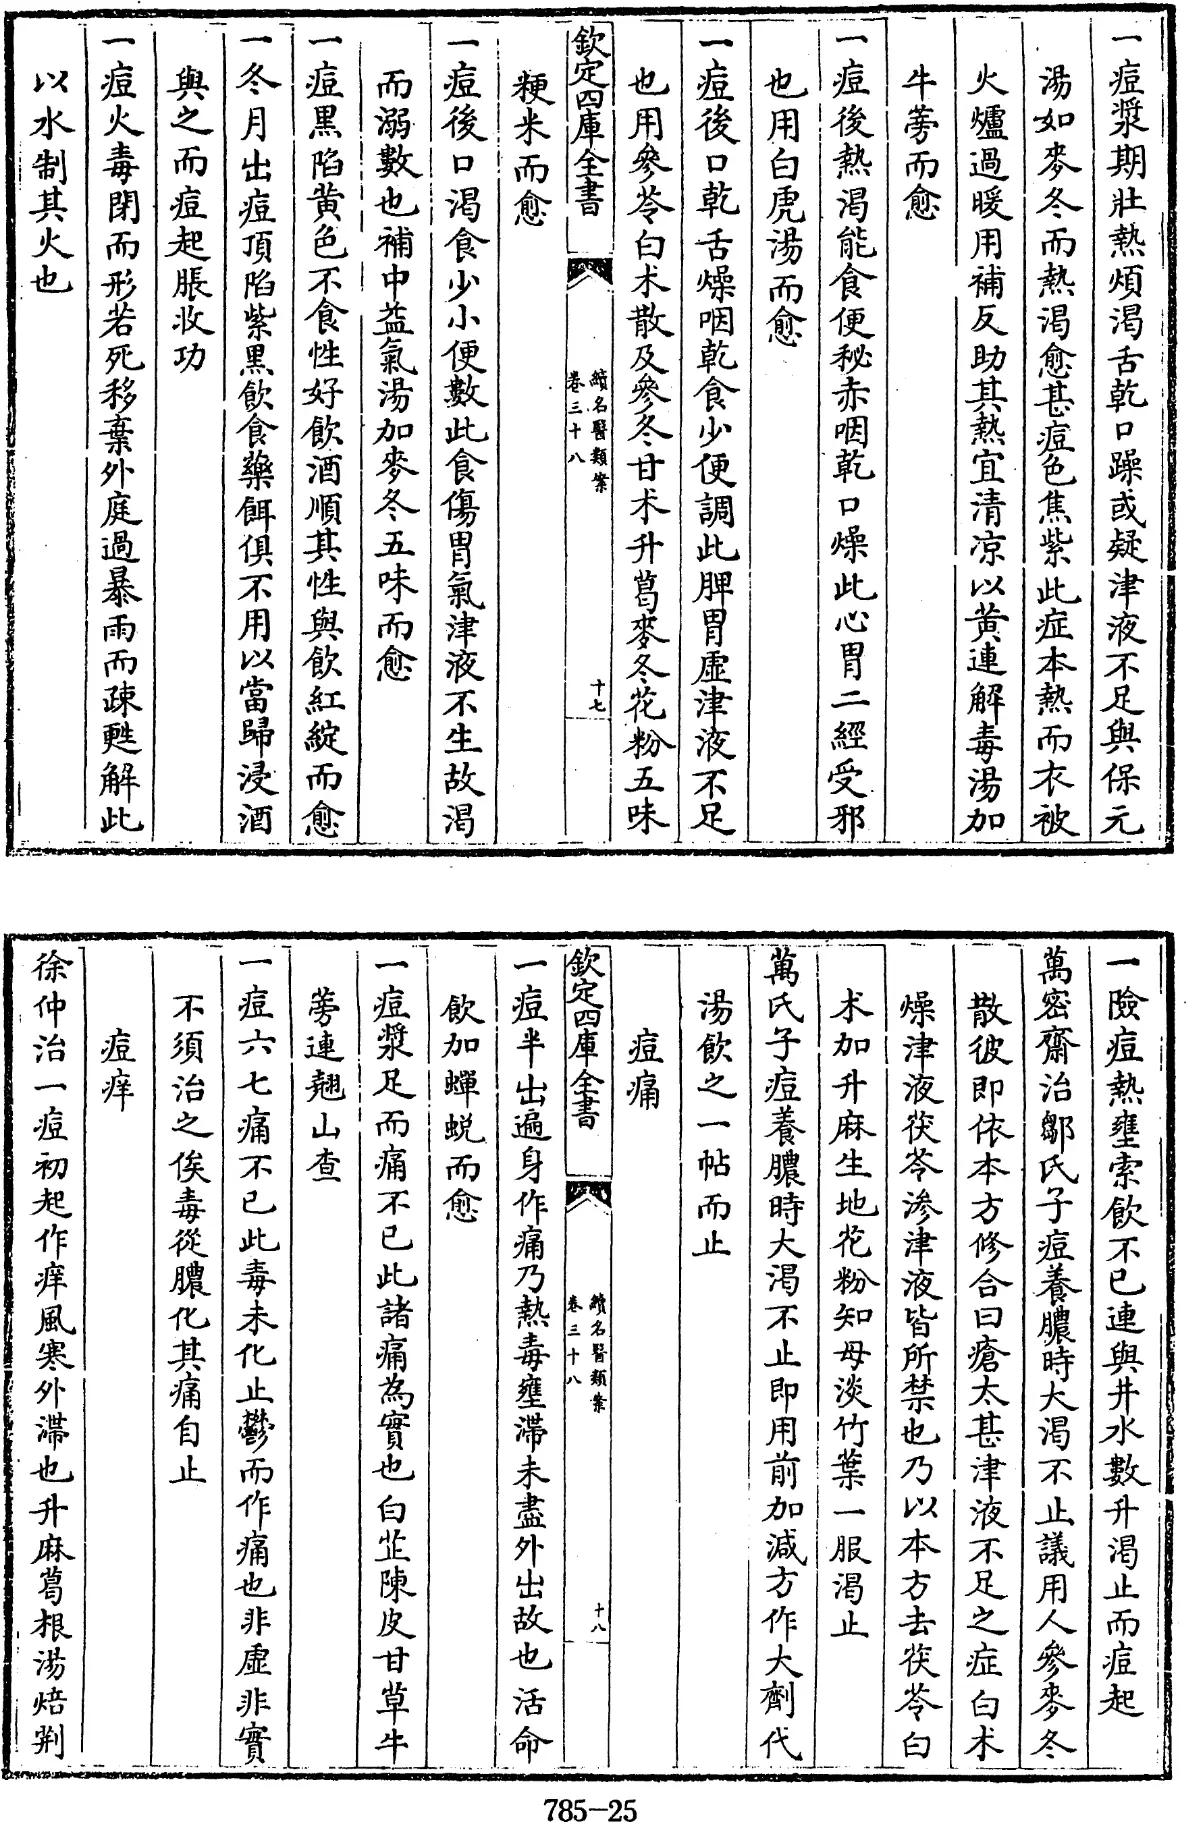 一痘漿期壯熱煩渴舌乾口躁或疑津液不足與保元
湯如麥冬而熱渴愈甚痘色焦紫此症本熱而衣被
火爐過暖用補反助其熱宜清凉以黄連解毒湯加
牛蒡而愈
一痘後熱渴能食便秘赤咽乾口燥此心胃二經受邪
也用白虎湯而愈
一痘後口乾舌燥咽乾食少便調此脾胃虛津液不足
也用參苓白朮散及參冬甘朮升葛麥冬花粉五味
欽定四庫全書
續名醫類案
卷三十八
十七
粳米而愈
一痘後口渴食少小便數此食傷胃氣津液不生故渴
而溺數也補中益氣湯加麥冬五味而愈
一痘黑陷黄色不食性好飲酒順其性與飲紅綻而愈
一冬月出痘頂陷紫黒飲食藥餌俱不用以當歸浸酒
與之而痘起脹收功
一痘火毒閉而形若死移棄外庭過暴雨而疎甦解此
以水制其火也
一險痘熱壅索飲不已連與井水數升渴止而痘起
萬密齋治鄒氏子痘養膿時大渴不止議用人參麥冬
散彼即依本方修合曰瘡太甚津液不足之症白朮
燥津液茯苓滲津液皆所禁也乃以本方去茯苓白
朮加升麻生地花粉知母淡竹葉一服渴止
萬氏子痘養膿時大渴不止即用前加減方作大劑代
湯飲之一帖而止
痘痛
欽定四庫全書
續名醫類案
卷三十八
十八
一痘半出遍身作痛乃熱毒壅滯未盡外出故也活命
飲加蟬蜕而愈
一痘漿足而痛不已此諸痛為實也白芷陳皮甘草牛
蒡連翹山查
一痘六七痛不已此毒未化止鬱而作痛也非虛非實
不須治之俟毒從膿化其痛自止
痘痒
徐仲治一痘初起作痒風寒外滯也升麻葛根湯焙荆
785-25